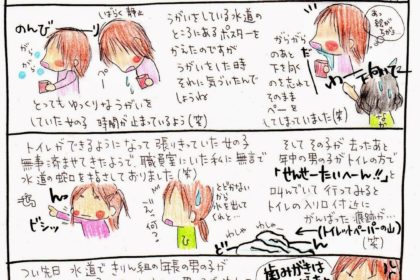 のんびり
しばらく静止
がら
がら
ぺー
うがいをしている水道の
ところにあるポスターを
見たのですが
うがいをした時
それに気づいたんで
しょうね
とってもゆっくりなうがいを
していた女の子 時間が止まっているよう(笑)
あっ
絵が
がらがら
のあと
下を向く
のを忘れて
そのまま
ぺーを
してしまいました(笑)
トイレができるようになって張りきっていた女の子
無事済ませてきたようで、職員室にいた私に無言で
水道の蛇口を指さしておりました(笑)
ん
ビシッ
とどかないから
水を出して
くれと…
ひ
そしてその子が去ったあと
年中の男の子がトイレの方で
「せんせーたいへーん!!」と
叫んでいて行ってみると
トイレの入り口付近に
がんばった痕跡が…
(トイレットペーパーの山)
(笑)
わしゃ
わしゃ
つい先日 水道できりん組の年長の男の子が
歯みがきは